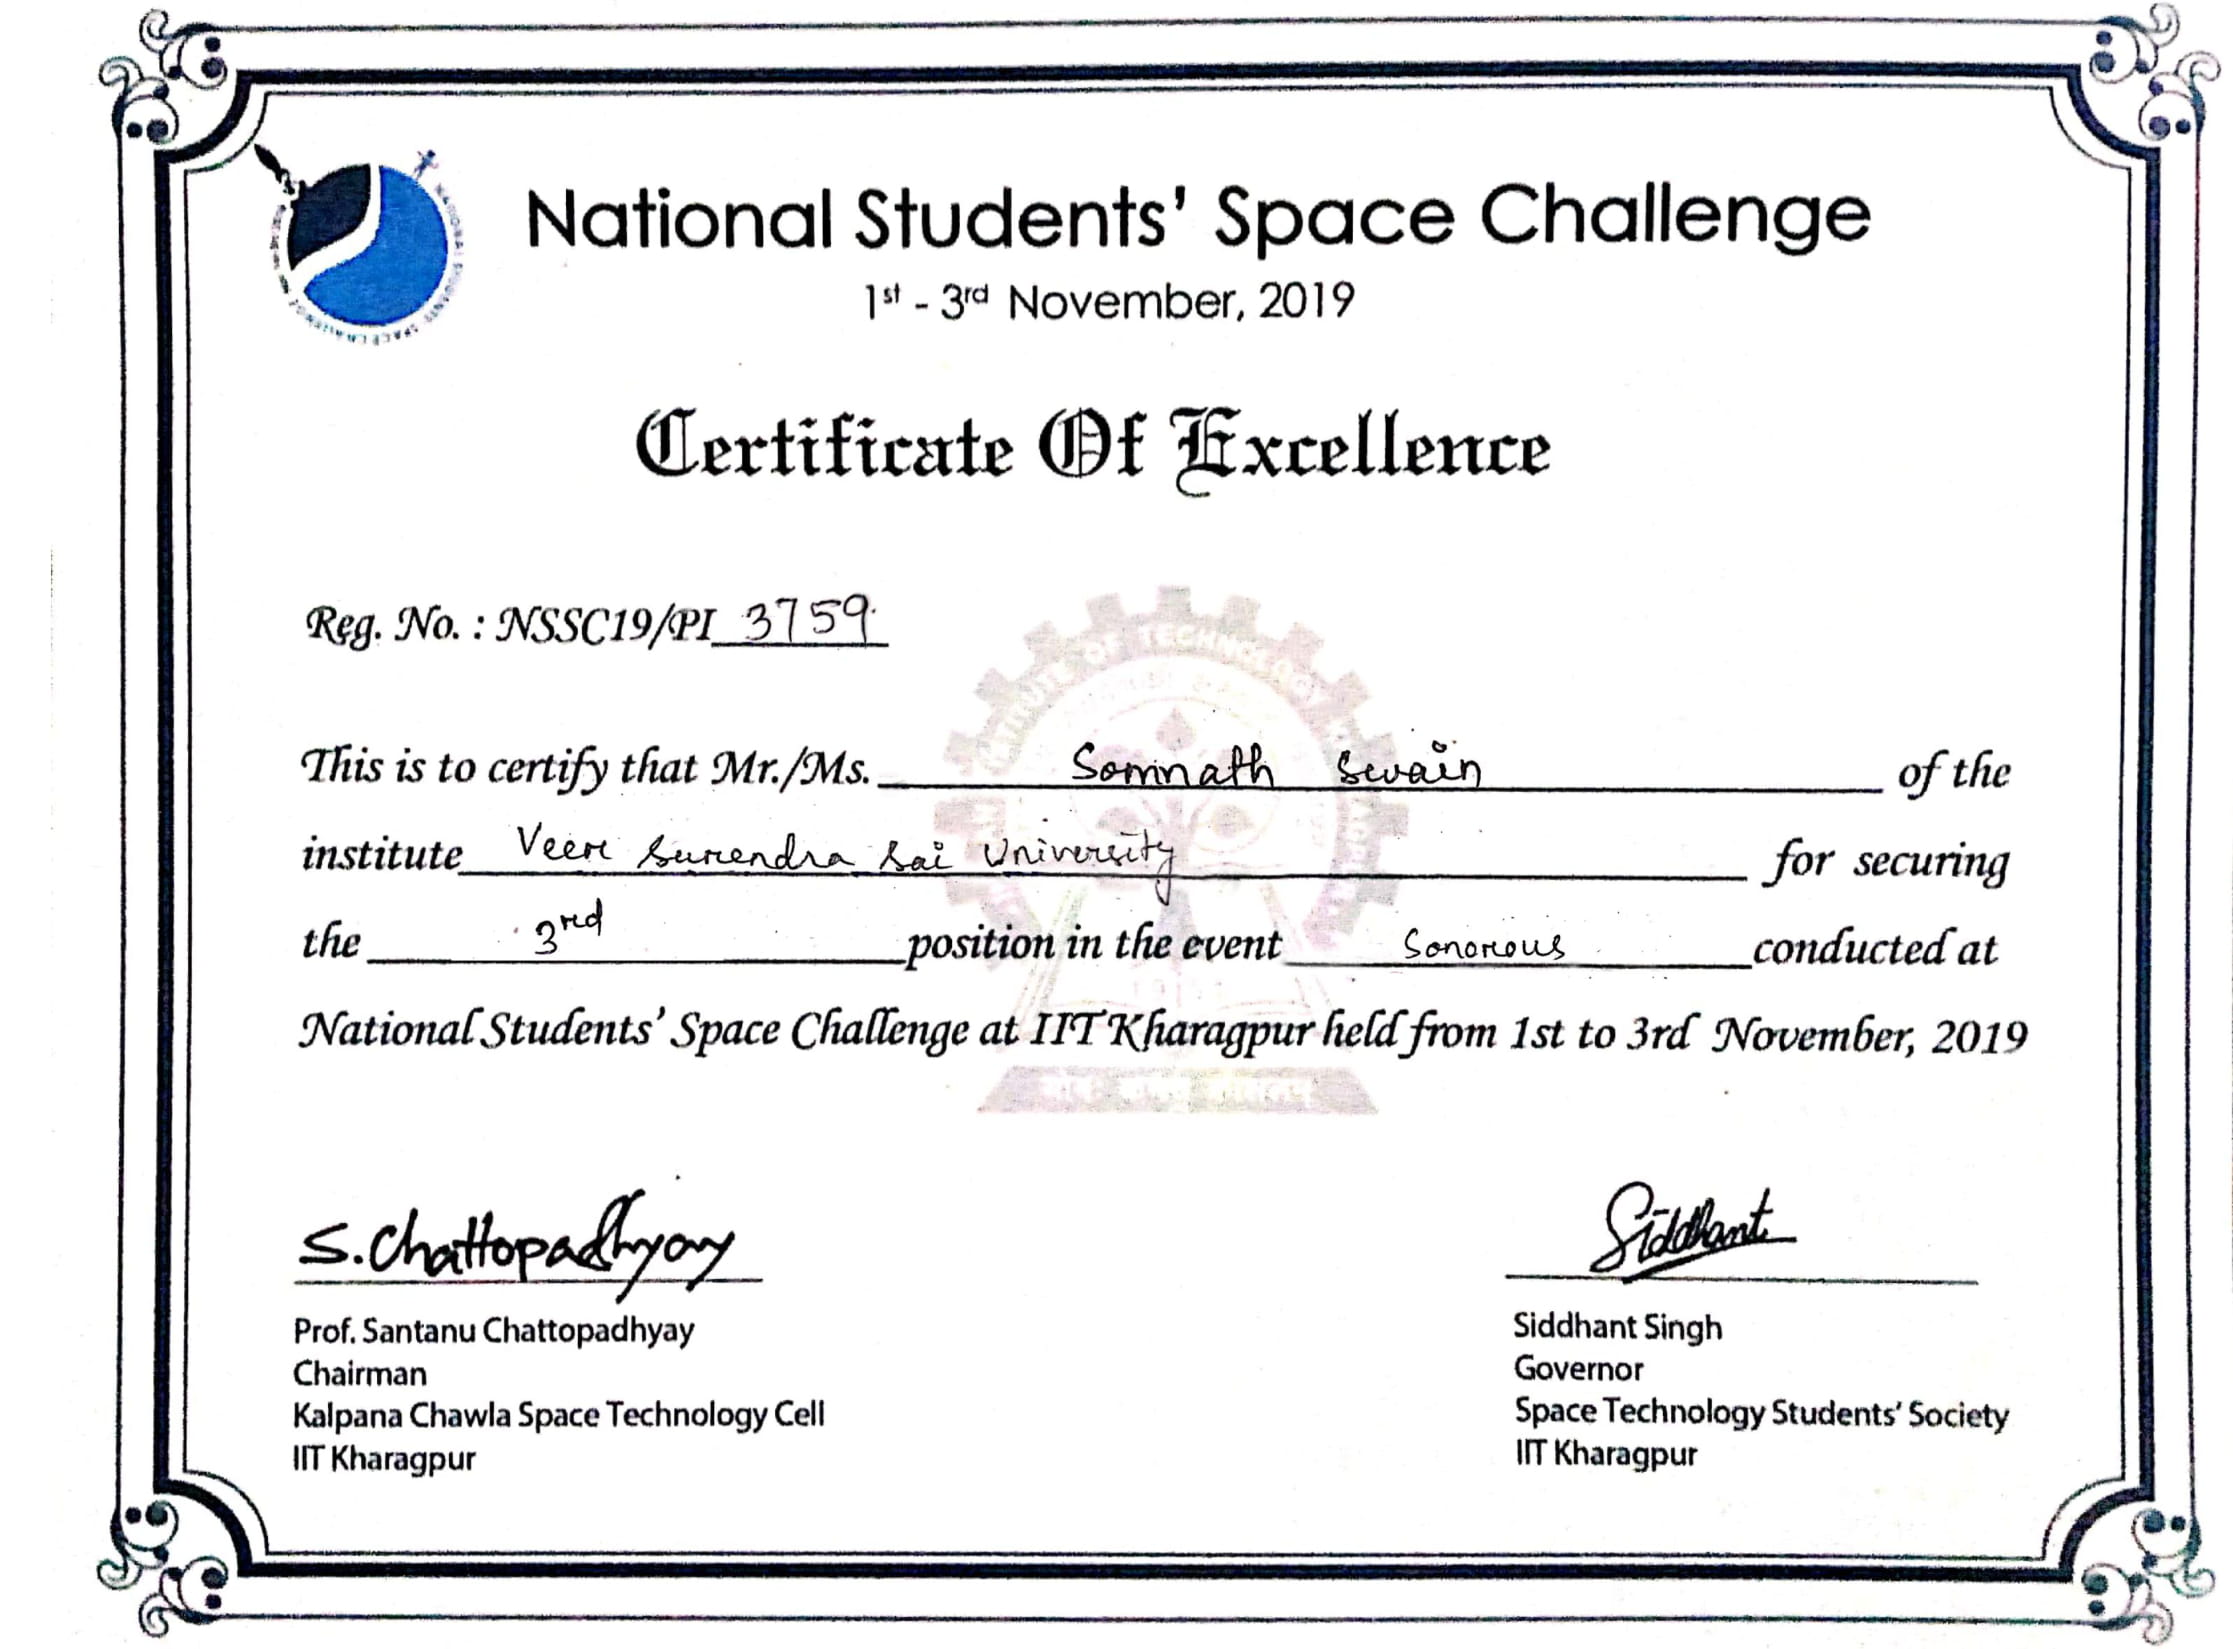 National Students' Space Challenge
1st - 3rd November, 2019
NATIONAL STUDENTS SPACE CHALLENGE
Certificate Of Excellence
Reg. No. : NSSC19/PI 3759
This is to certify that Mr./Ms. Somnath Swain of the
institute Veer Surendra Sai University for securing
the 3rd position in the event Sonorous conducted at
National Students' Space Challenge at IIT Kharagpur held from 1st to 3rd November, 2019
INSTITUTE OF TECHNOLOGY
S. Chattopadhyay
Prof. Santanu Chattopadhyay
Chairman
Kalpana Chawla Space Technology Cell
IIT Kharagpur
Siddhant
Siddhant Singh
Governor
Space Technology Students' Society
IIT Kharagpur